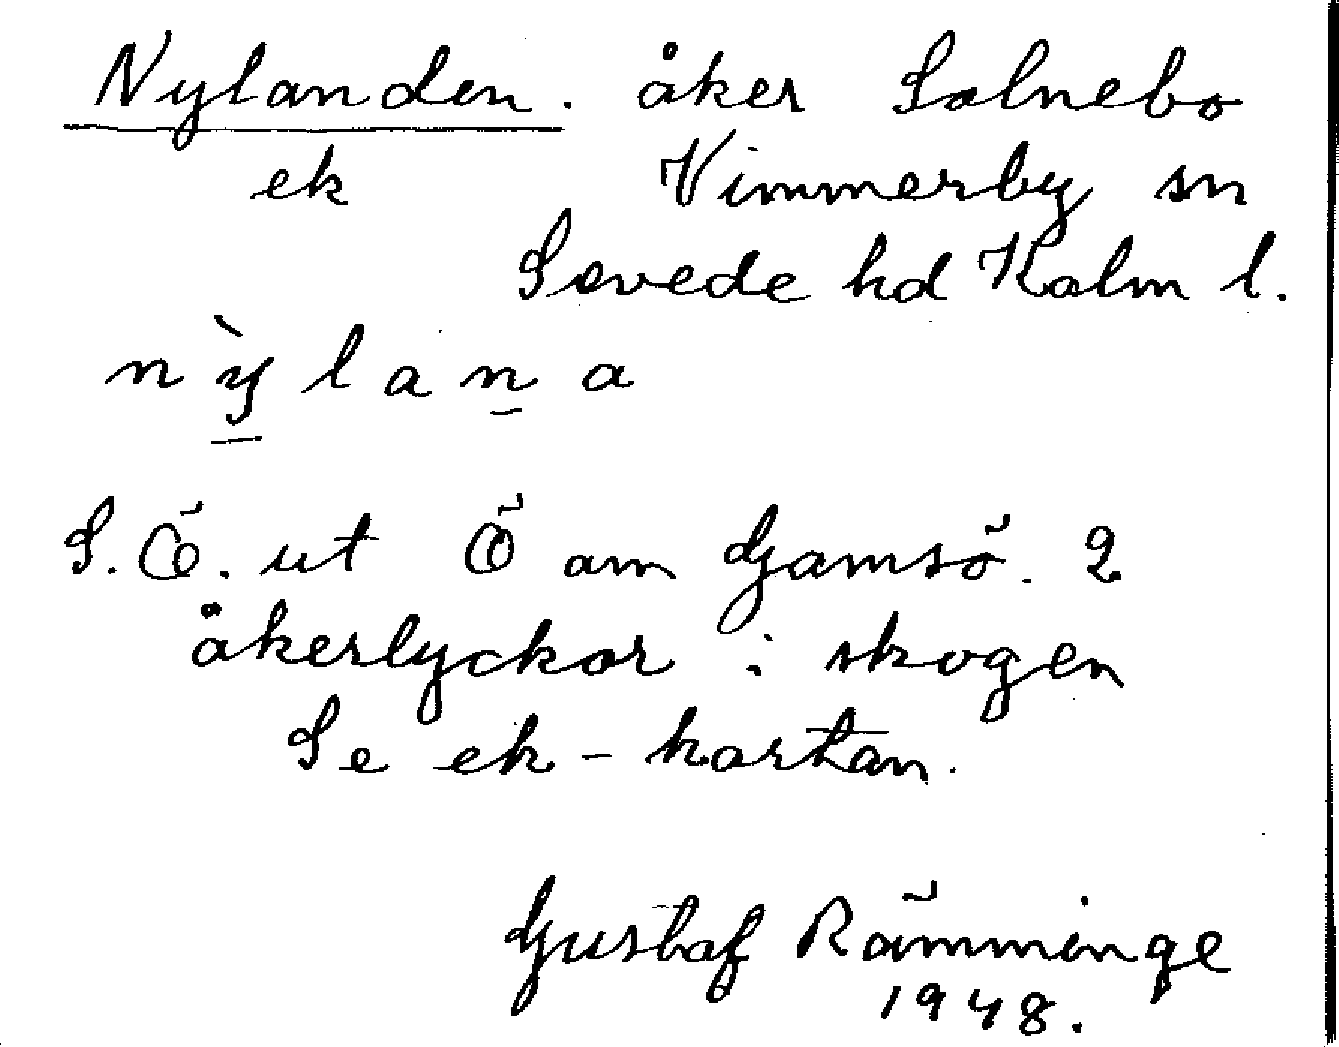 Nylanden. åker Solnebo
ek Vimmerby sn
Sevede hd Kalm l.
nỳlaṉa
S.Ö. ut Ö om Gamsö. 2
åkerlyckor i skogen
Se ek-kartan.
Gustaf Rämminge
1948.